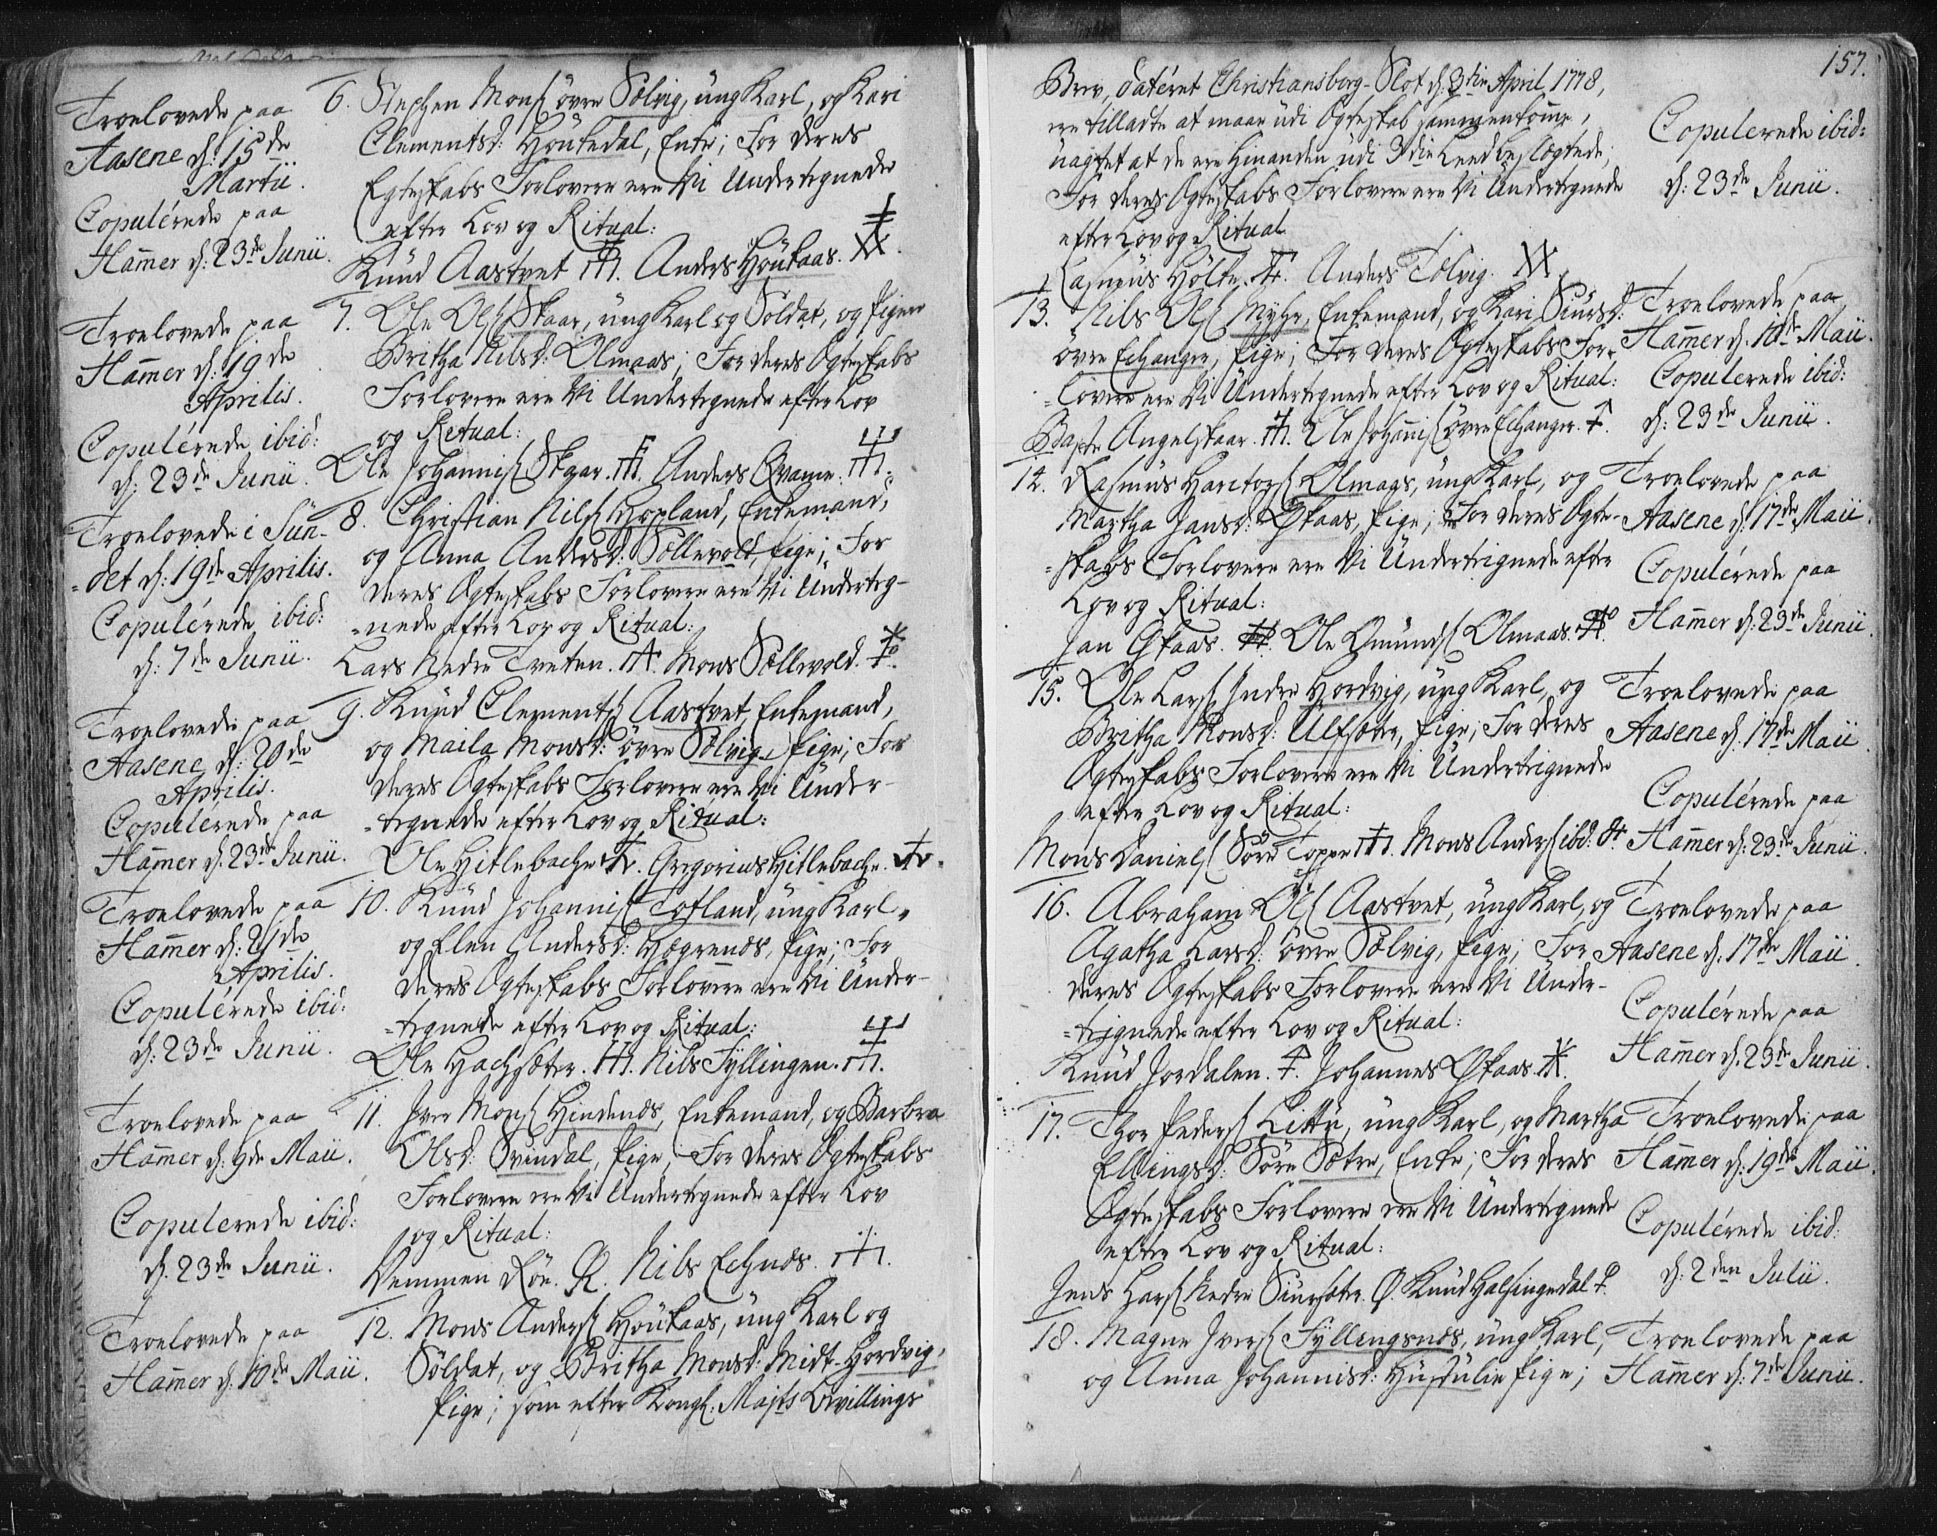 Troelovede paa
Aasene d: 15de
Martii.
Copulérede paa
Ham̄er d: 23de Junii.
6. Stephen Mons\. øvre Sølvig, ung Karl, og Kari
Clementsd: Houkedal, Enke; For deres
Egteskabs Forlovere ere Vi Undertegnede
efter Lov og Ritual:
Knud Aastvet. Anders Houkaas.
Troelovede paa
Ham̄er d: 19de
Aprilis.
Copulérede ibid:
d: 23de Junii.
7. Ole Ols\. Skaar, ung Karl og Soldat, og pigen
Britha Nilsd: Olmaas; For deres Ogteskabs
Forlovere ere Vi Undertegnede efter Lov
og Ritual:
Ole Johannis\. Skaar. Anders Qvame.
Troelovede i Sun-
-det d: 19de Aprilis.
Copulérede ibid:
d: 7de Junii.
8. Christian Nils\. Hopland, Enkemand,
og Anna Andersd: Sællevold, pige; For
deres Ogteskabs Forlovere ere Vi Underteg-
-nede efter Lov og Ritual:
Lars Nedre Tveten. Mons Sællevold.
Troelovede paa
Aasene d: 20de
Aprilis.
Copulerede paa
Ham̄er d: 23de Junii.
9. Knud Clements\. Aastvet, Enkemand,
og Maila Monsd: øvre Sølvig, pige; For
deres Ogteskabs Forlovere ere Vi Under-
-tegnede efter Lov og Ritual:
Ole Hitlebache. Gregorius Hitlebache.
Troelovede paa
Ham̄er d: 21de
Aprilis.
Copulérede ibid:
d: 23de Junii.
10. Knud Johannis\. Totland, ung Karl,
og Elen Andersd: Hægrenæs, pige; For
deres Ogteskabs Forlovere ere Vi Under-
-tegnede efter Lov og Ritual:
Ole Hachsæter. Nils Fyllingen.
Troelovede paa
Ham̄er d: 9de Maii.
Copulerede ibid:
d: 23de Junii.
11. Iver Mons\. Hindenæs, Enkemand, og Barbra
Olsd: Svindal, pige, For deres Ogteskabs
Forlovere ere Vi Undertegnede efter Lov
og Ritual:
Vemmen Røe. Nils Echnæs.
Troelovede paa
Ham̄er d: 10de Maii.
12. Mons Anders\. Houkaas, ung Karl og
Soldat, og Britha Monsd: Midt-Hordvig,
pige; som efter Kongl: Majts Bevillings
157.
Brev, datéret Christiansborg-Slot d: 3die April 1778,
ere tilladte at maae udi Ogteskab sammenkom̄e,
uagtet at de ere hinanden udi 3die Leed beslægtede;
For deres Ogteskabs Forlovere ere Vi Undertegnede
efter Lov og Ritual
Rasmus Holte. Anders Tolvig.
Copulérede ibid:
d: 23de Junii.
13. Nils Ols\. Myhr, Enkemand, og Kari Siursd:
øvre Echanger, pige; For deres Ogteskabs For-
-lovere ere Vi Undertegnede efter Lov og Ritual:
Angelskaar. Ole Johannis\. øvre Echanger.
Troelovede paa
Ham̄er d: 10de Maii.
Copulerede ibid:
d: 23de Junii.
14. Rasmus Haritors\. Olmaas, ung Karl, og
Martha Jansd: Øskaas, pige; For deres Ogte-
-skabs Forlovere ere Vi Undertegnede efter
Lov og Ritual:
Jan Øskaas. Ole Omunds\. Olmaas.
Troelovede paa
Aasene d: 17de Maii.
Copulérede paa
Ham̄er d: 23de Junii.
15. Ole Lars\. Indre Hordvig, ung Karl, og
Britha Monsd: Ulfsæter, pige; For deres
Ogteskabs Forlovere ere Vi Undertegnede
efter Lov og Ritual:
Mons Daniels\. Søre Toppe. Mons Anders\. ibd:
Troelovede paa
Aasene d: 17de Maii
Copulérede paa
Ham̄er d: 23de Junii.
16. Abraham Ols\. Aastvet, ung Karl, og
Agatha Larsd: øvre Sølvig, pige; For
deres Ogteskabs Forlovere ere Vi Under-
-tegnede efter Lov og Ritual:
Knud Jordalen. Johannes Øskaas.
Troelovede paa
Aasene d: 17de Maii.
Copulérede paa
Ham̄er d: 23de Junii.
17. Thor Peders\. Little, ung Karl, og Martha
Ellingsd: Søre Sætre, Enke; For deres
Ogteskabs Forlovere ere Vi Undertegnede
efter Lov og Ritual:
Jens Lars\. Nedre Siursæter. Knud Halsingedal.
Troelovede paa
Ham̄er d: 19de Maii.
Copulérede ibid:
d: 2den Julii.
18. Magne Ivers\. Fyllingsnæs, ung Karl,
og Anna Johannisd: Husdulie pige;
Troelovede paa
Ham̄er d: 7de Junii.